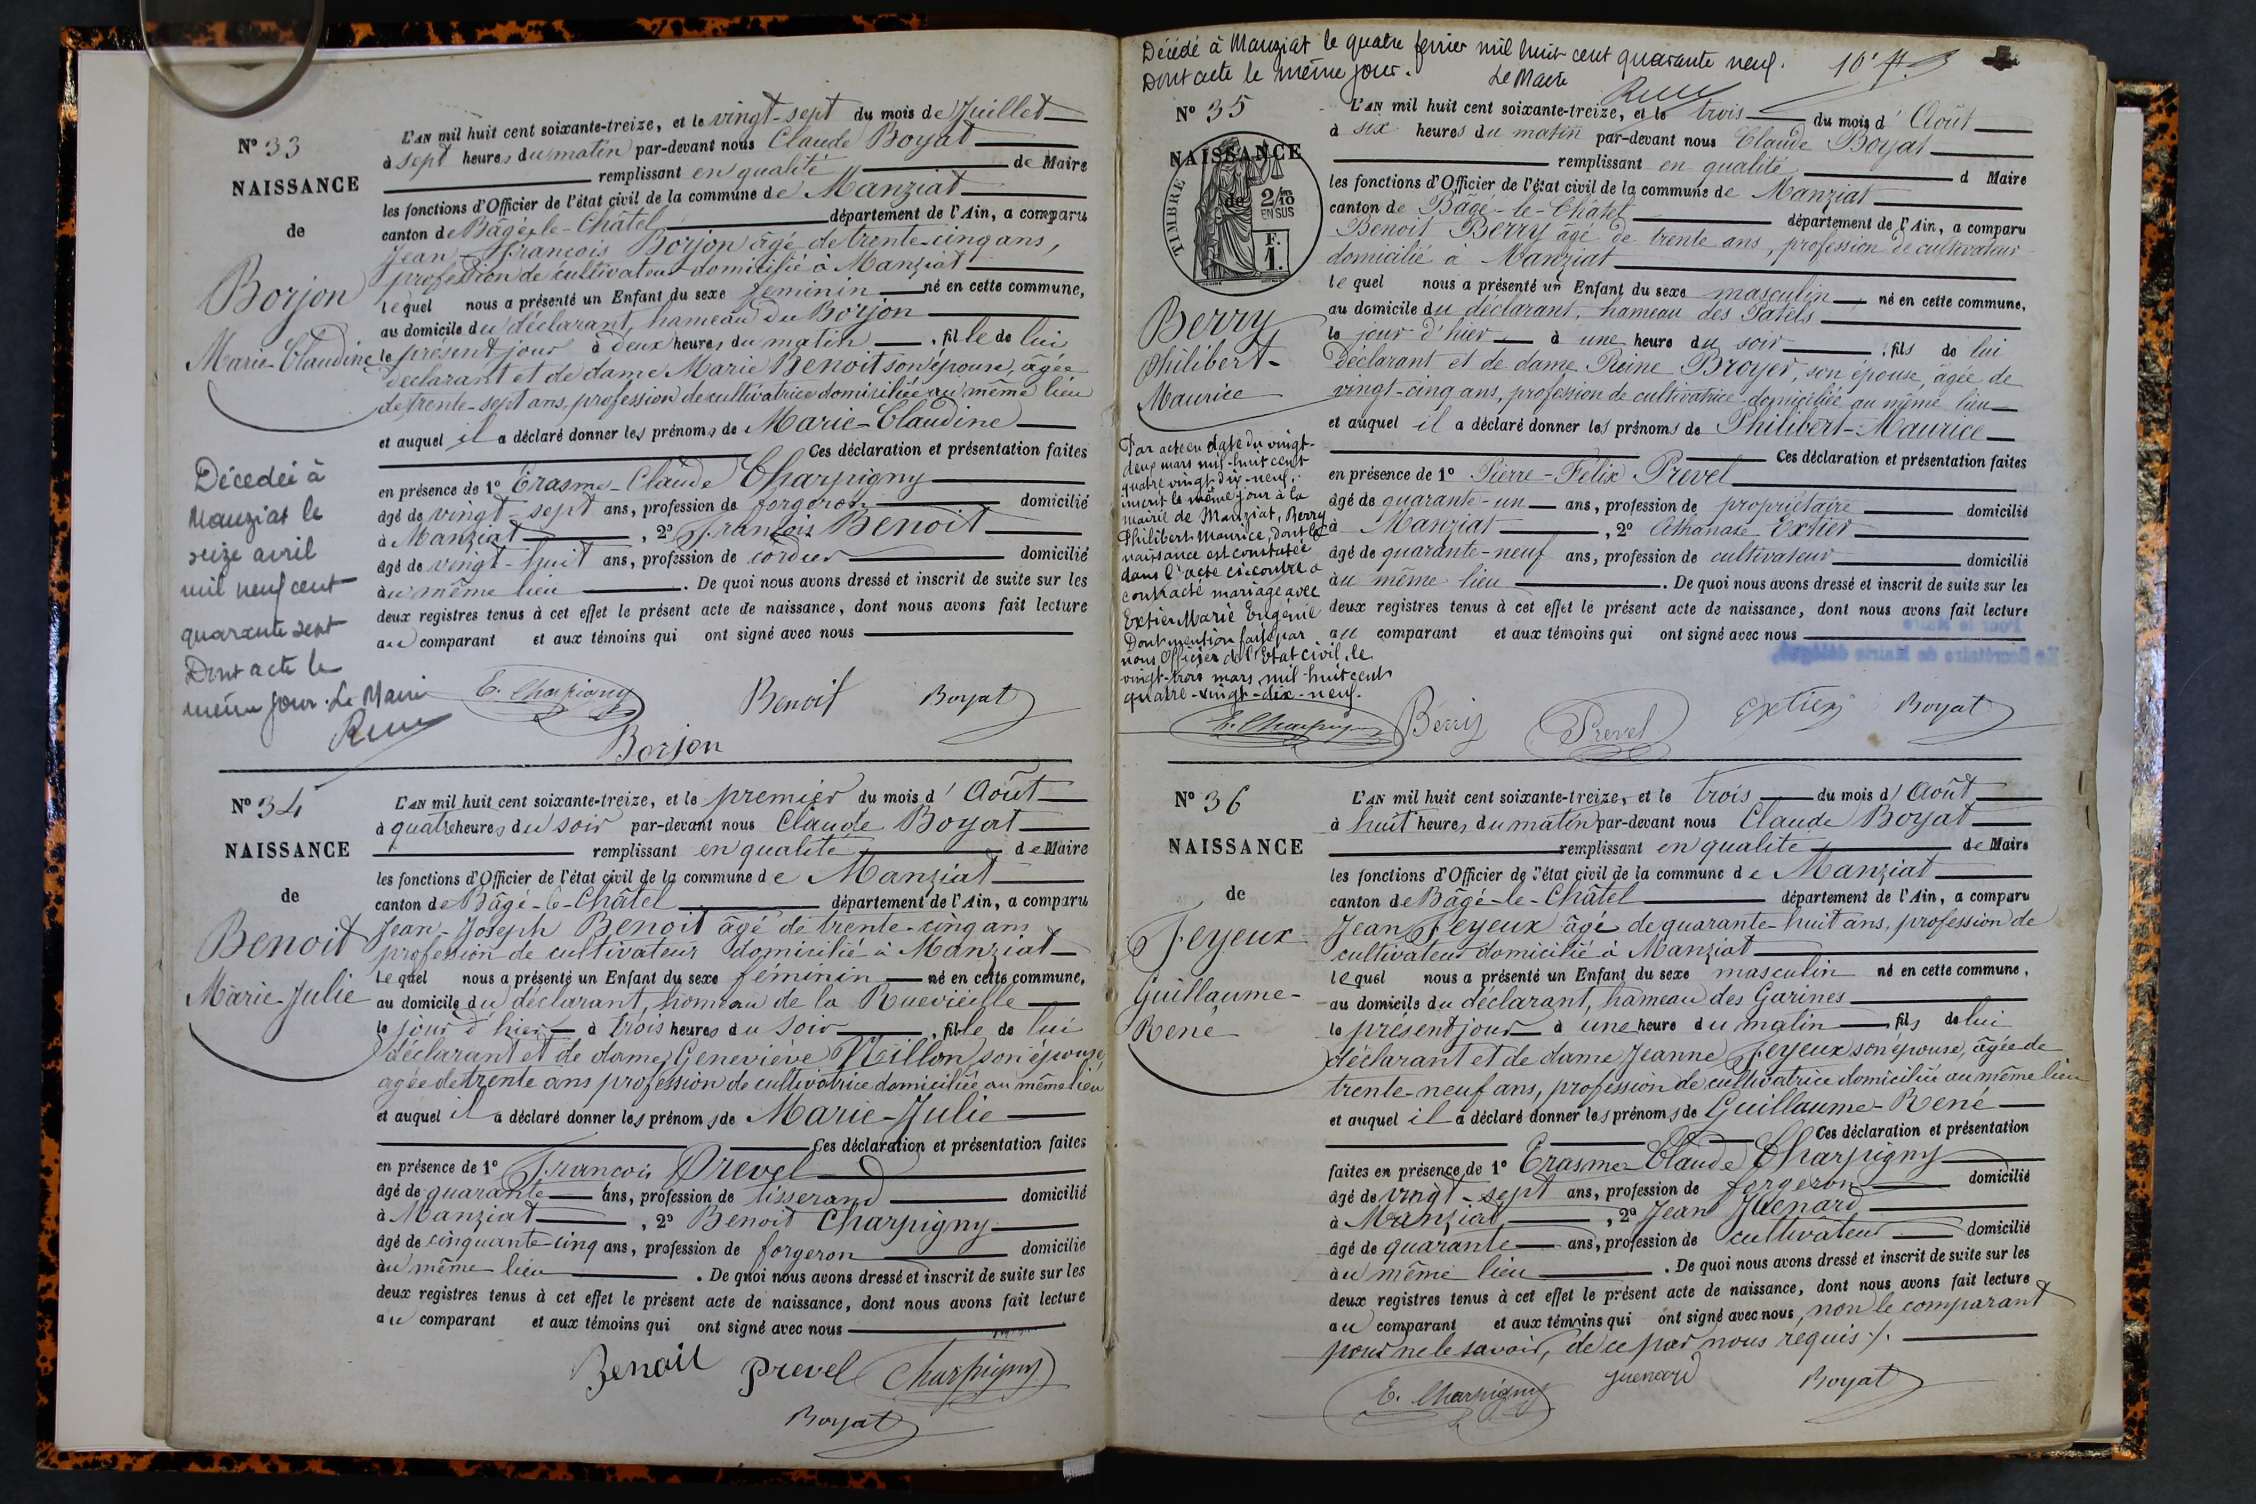 N° 33
NAISSANCE
de
Borjon
Marie-Claudine
Décédée à
Manziat le
seize avril
mil neuf cent
quarante sept
Dont acte le
même jour. Le Maire
L'AN mil huit cent soixante-treize, et le vingt-sept du mois de Juillet
à sept heures du matin par-devant nous Claude Boyat
remplissant en qualité de Maire
les fonctions d'Officier de l'état civil de la commune de Manziat
canton de Bâgé-le-Châtel département de l'Ain, a comparu
Jean-François Borjon âgé de trente-cinq ans,
profession de cultivateur domicilié à Manziat
lequel nous a présenté un Enfant du sexe féminin né en cette commune,
au domicile du déclarant, hameau du Borjon
le présent jour à deux heures du matin, fille de lui
déclarant et de dame Marie Benoit son épouse, âgée
de trente-sept ans, profession de cultivatrice domiciliée au même lieu
et auquel il a déclaré donner les prénoms de Marie-Claudine
Ces déclaration et présentation faites
en présence de 1° Erasme-Claude Charpigny
âgé de vingt-sept ans, profession de forgeron domicilié
à Manziat, 2° François Benoit
âgé de vingt-huit ans, profession de cordier domicilié
au même lieu. De quoi nous avons dressé et inscrit de suite sur les
deux registres tenus à cet effet le présent acte de naissance, dont nous avons fait lecture
au comparant et aux témoins qui ont signé avec nous
E. Charpigny Benoit Boyat
Borjon
N° 34
NAISSANCE
de
Benoit
Marie-Julie
L'AN mil huit cent soixante-treize, et le premier du mois d'Août
à quatre heures du soir par-devant nous Claude Boyat
remplissant en qualité de Maire
les fonctions d'Officier de l'état civil de la commune de Manziat
canton de Bâgé-le-Châtel département de l'Ain, a comparu
Jean-Joseph Benoit âgé de trente-cinq ans
profession de cultivateur domicilié à Manziat
lequel nous a présenté un Enfant du sexe féminin né en cette commune,
au domicile du déclarant, hameau de la Ruevieille
le jour d'hier à trois heures du soir, fille de lui
déclarant et de dame Geneviève Nillon son épouse,
âgée de trente ans profession de cultivatrice domiciliée au même lieu
et auquel il a déclaré donner les prénoms de Marie-Julie
Ces déclaration et présentation faites
en présence de 1° François Prevel
âgé de quarante ans, profession de tisserand domicilié
à Manziat, 2° Benoit Charpigny
âgé de cinquante-cinq ans, profession de forgeron domicilié
au même lieu. De quoi nous avons dressé et inscrit de suite sur les
deux registres tenus à cet effet le présent acte de naissance, dont nous avons fait lecture
au comparant et aux témoins qui ont signé avec nous
Benoit prevel Charpigny
Boyat
Décédé à Manziat le quatre fevrier mil huit cent quarante neuf.
Dont acte le même jour. Le Maire
N° 35
NAISSANCE
de
TIMBRE
2/10
EN SUS
F.
1.
Berry
Philibert-
Maurice
Par acte en date du vingt-
deux mars mil-huit cent
quatre vingt-dix-neuf,
inscrit le même jour à la
mairie de Manziat, Berry
Philibert Maurice, dont la
naissance est constatée
dans l'acte ci-contre a
contracté mariage avec
Extier Marie Eugénie
Dont mention faite par
nous Officier de l'Etat civil, le
vingt-trois mars mil-huit cent
quatre-vingt-dix-neuf.
L'AN mil huit cent soixante-treize, et le trois du mois d'Août
à six heures du matin par-devant nous Claude Boyat
remplissant en qualité d Maire
les fonctions d'Officier de l'état civil de la commune de Manziat
canton de Bâgé-le-Châtel département de l'Ain, a comparu
Benoit Berry âgé de trente ans, profession de cultivateur
domicilié à Manziat
lequel nous a présenté un Enfant du sexe masculin, né en cette commune,
au domicile du déclarant, hameau des Patels
le jour d'hier à une heure du soir, fils de lui
Déclarant et de dame Reine Broyer, son épouse, âgée de
vingt-cinq ans, profession de cultivatrice domiciliée au même lieu
et auquel il a déclaré donner les prénoms de Philibert-Maurice
Ces déclaration et présentation faites
en présence de 1° Pierre-Félix Prevel
âgé de quarante-un ans, profession de propriétaire domicilié
à Manziat, 2° Athanase Extier
âgé de quarante-neuf ans, profession de cultivateur domicilié
au même lieu. De quoi nous avons dressé et inscrit de suite sur les
deux registres tenus à cet effet le présent acte de naissance, dont nous avons fait lecture
au comparant et aux témoins qui ont signé avec nous
E. Charpigny Berry Prevel Extier Boyat
N° 36
NAISSANCE
de
Feyeux
Guillaume-
René
L'AN mil huit cent soixante-treize, et le trois du mois d'Août
à huit heures du matin par-devant nous Claude Boyat
remplissant en qualité de Maire
les fonctions d'Officier de l'état civil de la commune de Manziat
canton de Bâgé-le-Châtel département de l'Ain, a comparu
Jean Feyeux âgé de quarante-huit ans, profession de
cultivateur domicilié à Manziat
lequel nous a présenté un Enfant du sexe masculin né en cette commune,
au domicile du déclarant, hameau des Garines
le présent jour à une heure du matin fils de lui
déclarant et de dame Jeanne Feyeux son épouse, âgée de
trente-neuf ans, profession de cultivatrice domiciliée au même lieu
et auquel il a déclaré donner les prénoms de Guillaume-René
Ces déclaration et présentation
faites en présence de 1° Erasme-Claude Charpigny
âgé de vingt-sept ans, profession de forgeron domicilié
à Manziat, 2° Jean Guenard
âgé de quarante ans, profession de cultivateur domicilié
au même lieu. De quoi nous avons dressé et inscrit de suite sur les
deux registres tenus à cet effet le présent acte de naissance, dont nous avons fait lecture
au comparant et aux témoins qui ont signé avec nous, non le comparant
pour ne le savoir, de ce par nous requis /.
E. Charpigny guenard Boyat